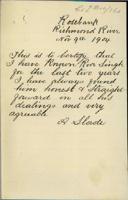 Rosebank
Richmond River
Nov 9th 1904
This is to certify that
I have Known Kir Singh
for the last two years
I have always found
him honest & Straight
forward in all his
dealings and very
agreeable
A Slade